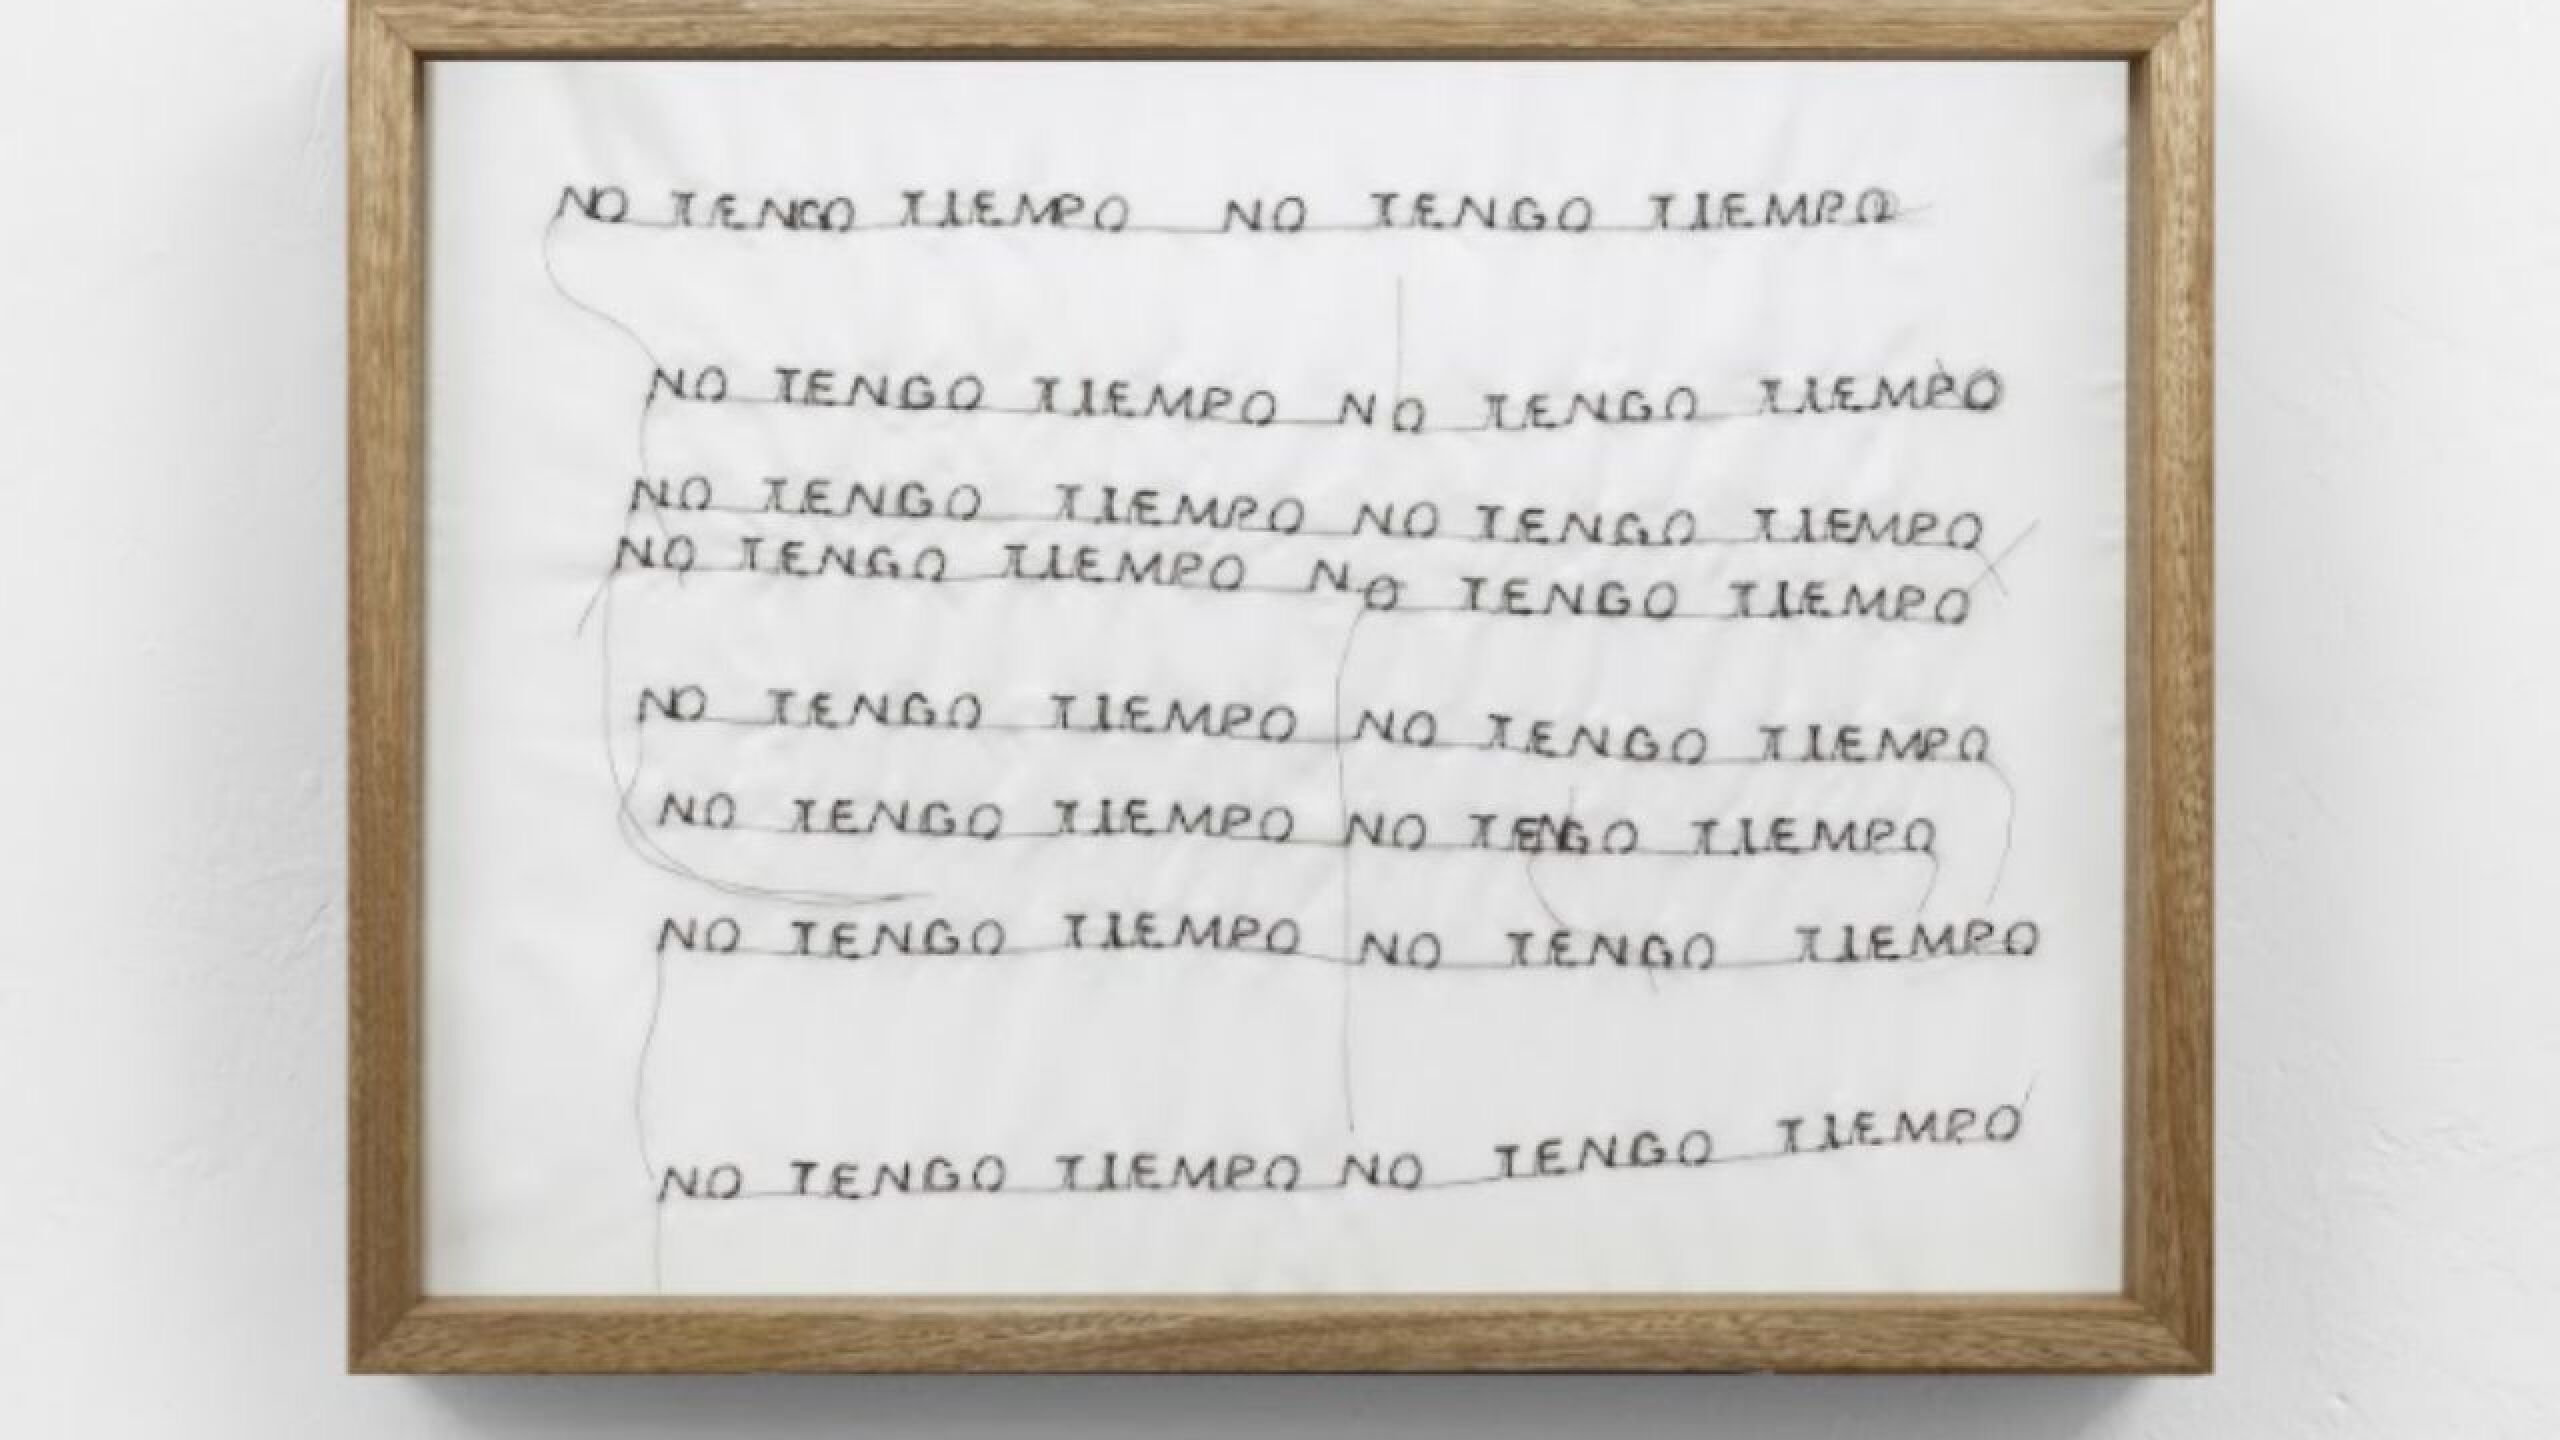 NO TENGO TIEMPO NO TENGO TIEMPO
NO TENGO TIEMPO NO TENGO TIEMPO
NO TENGO TIEMPO NO TENGO TIEMPO
NO TENGO TIEMPO NO TENGO TIEMPO
NO TENGO TIEMPO NO TENGO TIEMPO
NO TENGO TIEMPO NO TENGO TIEMPO
NO TENGO TIEMPO NO TENGO TIEMPO
NO TENGO TIEMPO NO TENGO TIEMPO